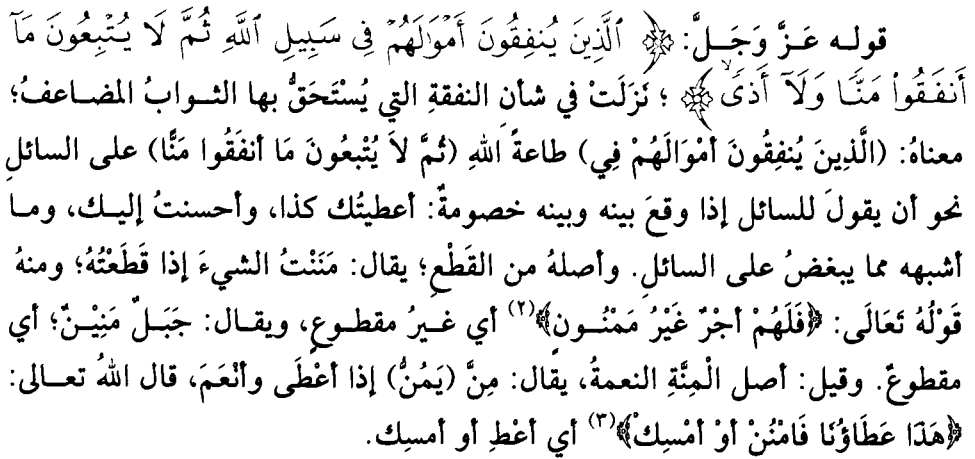 قوله عَزَّ وَجَلَّ: ﴿ ٱلَّذِينَ يُنفِقُونَ أَمْوَٰلَهُمْ فِى سَبِيلِ ٱللَّهِ ثُمَّ لَا يُتْبِعُونَ مَآ
أَنفَقُوا۟ مَنًّا وَلَآ أَذًى ﴾ ؛ نَزَلَتْ في شأنِ النفقةِ التي يُسْتَحَقُّ بها الثوابُ المضاعفُ؛
معناهُ: (الَّذِينَ يُنفِقُونَ أمْوَالَهُمْ فِي) طاعةً اللهِ (ثُمَّ لاَ يُتْبعُونَ مَا أنفَقُوا مَنًّا) على السائلِ
نحو أن يقولَ للسائل إذا وقعَ بينه وبينه خصومةٌ: أعطيتُك كذا، وأحسنتُ إليك، وما
أشبهه مما يبغضُ على السائلِ. وأصلهُ من القَطْعِ؛ يقال: مَنَنْتُ الشيءَ إذا قَطَعْتُهُ؛ ومنهُ
قَوْلُهُ تَعَالَى: ﴿فَلَهُمْ أجْرٌ غَيْرُ مَمْنُونٍ﴾(٢) أي غيرُ مقطوعٍ، ويقال: جَبَلٌ مَنِيْنٌ؛ أي
مقطوعٌ. وقيل: أصل الْمِنَّةِ النعمةُ، يقال: مِنَّ (يَمُنُّ) إذا أعْطَى وأنْعَمَ، قال اللهُ تعالى:
﴿هَذَا عَطَاؤُنَا فَامْنُنْ أوْ أمْسِكْ﴾(٣) أي أعْطِ أو أمسِك.